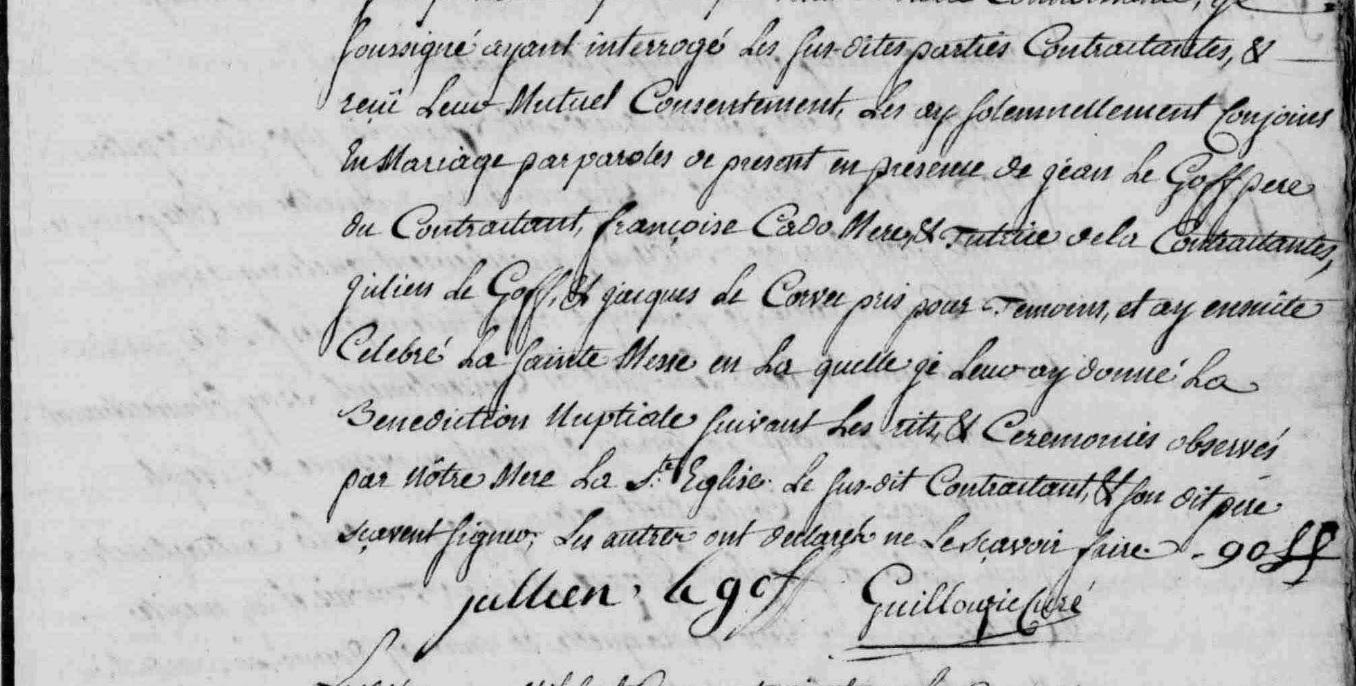 soussigné ayant interrogé Les sus-dites parties Contractantes, &
reçû Leur Mutuel Consentement, Les ay solemnellement Conjoins
En Mariage par paroles de present en presence de géan Le Goff pere
du Contractant, françoise Cado Mere, & Tutrice de la Contractantes,
gulien Le Goff, & gacques Le Corvec pris pour Temoins, et ay ensuite
Celebré La sainte Messe en La quelle gé Leur ay donné La
Benediction Nuptiale suivant Les rits, & Ceremonies observés
par nôtre Mere La Ste Eglise. Le sus-dit Contractant, & son dit pere
sçavent signer, Les autres ont declaréz ne Le sçavoir faire.
jullien . le goff Curé